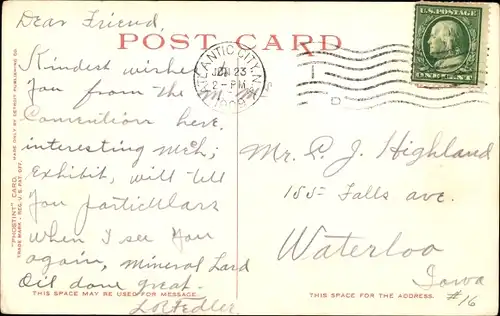 Dear Friend,
POST CARD
Kindest wishes
You from the
Convention here,
interesting Mch;
Exhibit, will tell
You particulars
when I see You
again, Mineral Lard
Oil done great.
THIS SPACE MAY BE USED FOR MESSAGE.
"PHOSTINT" CARD, MADE ONLY BY DETROIT PUBLISHING CO.
TRADE MARK - REG. U.S. PAT. OFF.
ATLANTIC CITY, N.J.
JUN 23
2-PM
1909
U.S. POSTAGE
ONE CENT
Mr. P. J. Highland
155 Falls ave.
Waterloo
Iowa
#16
THIS SPACE IS FOR THE ADDRESS.